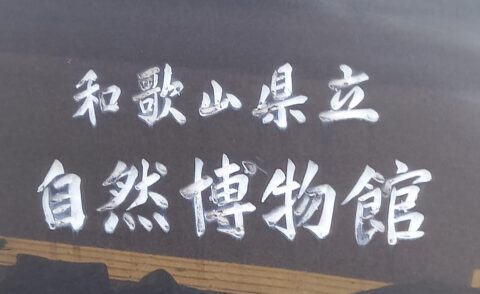 和歌山県立
自然博物館